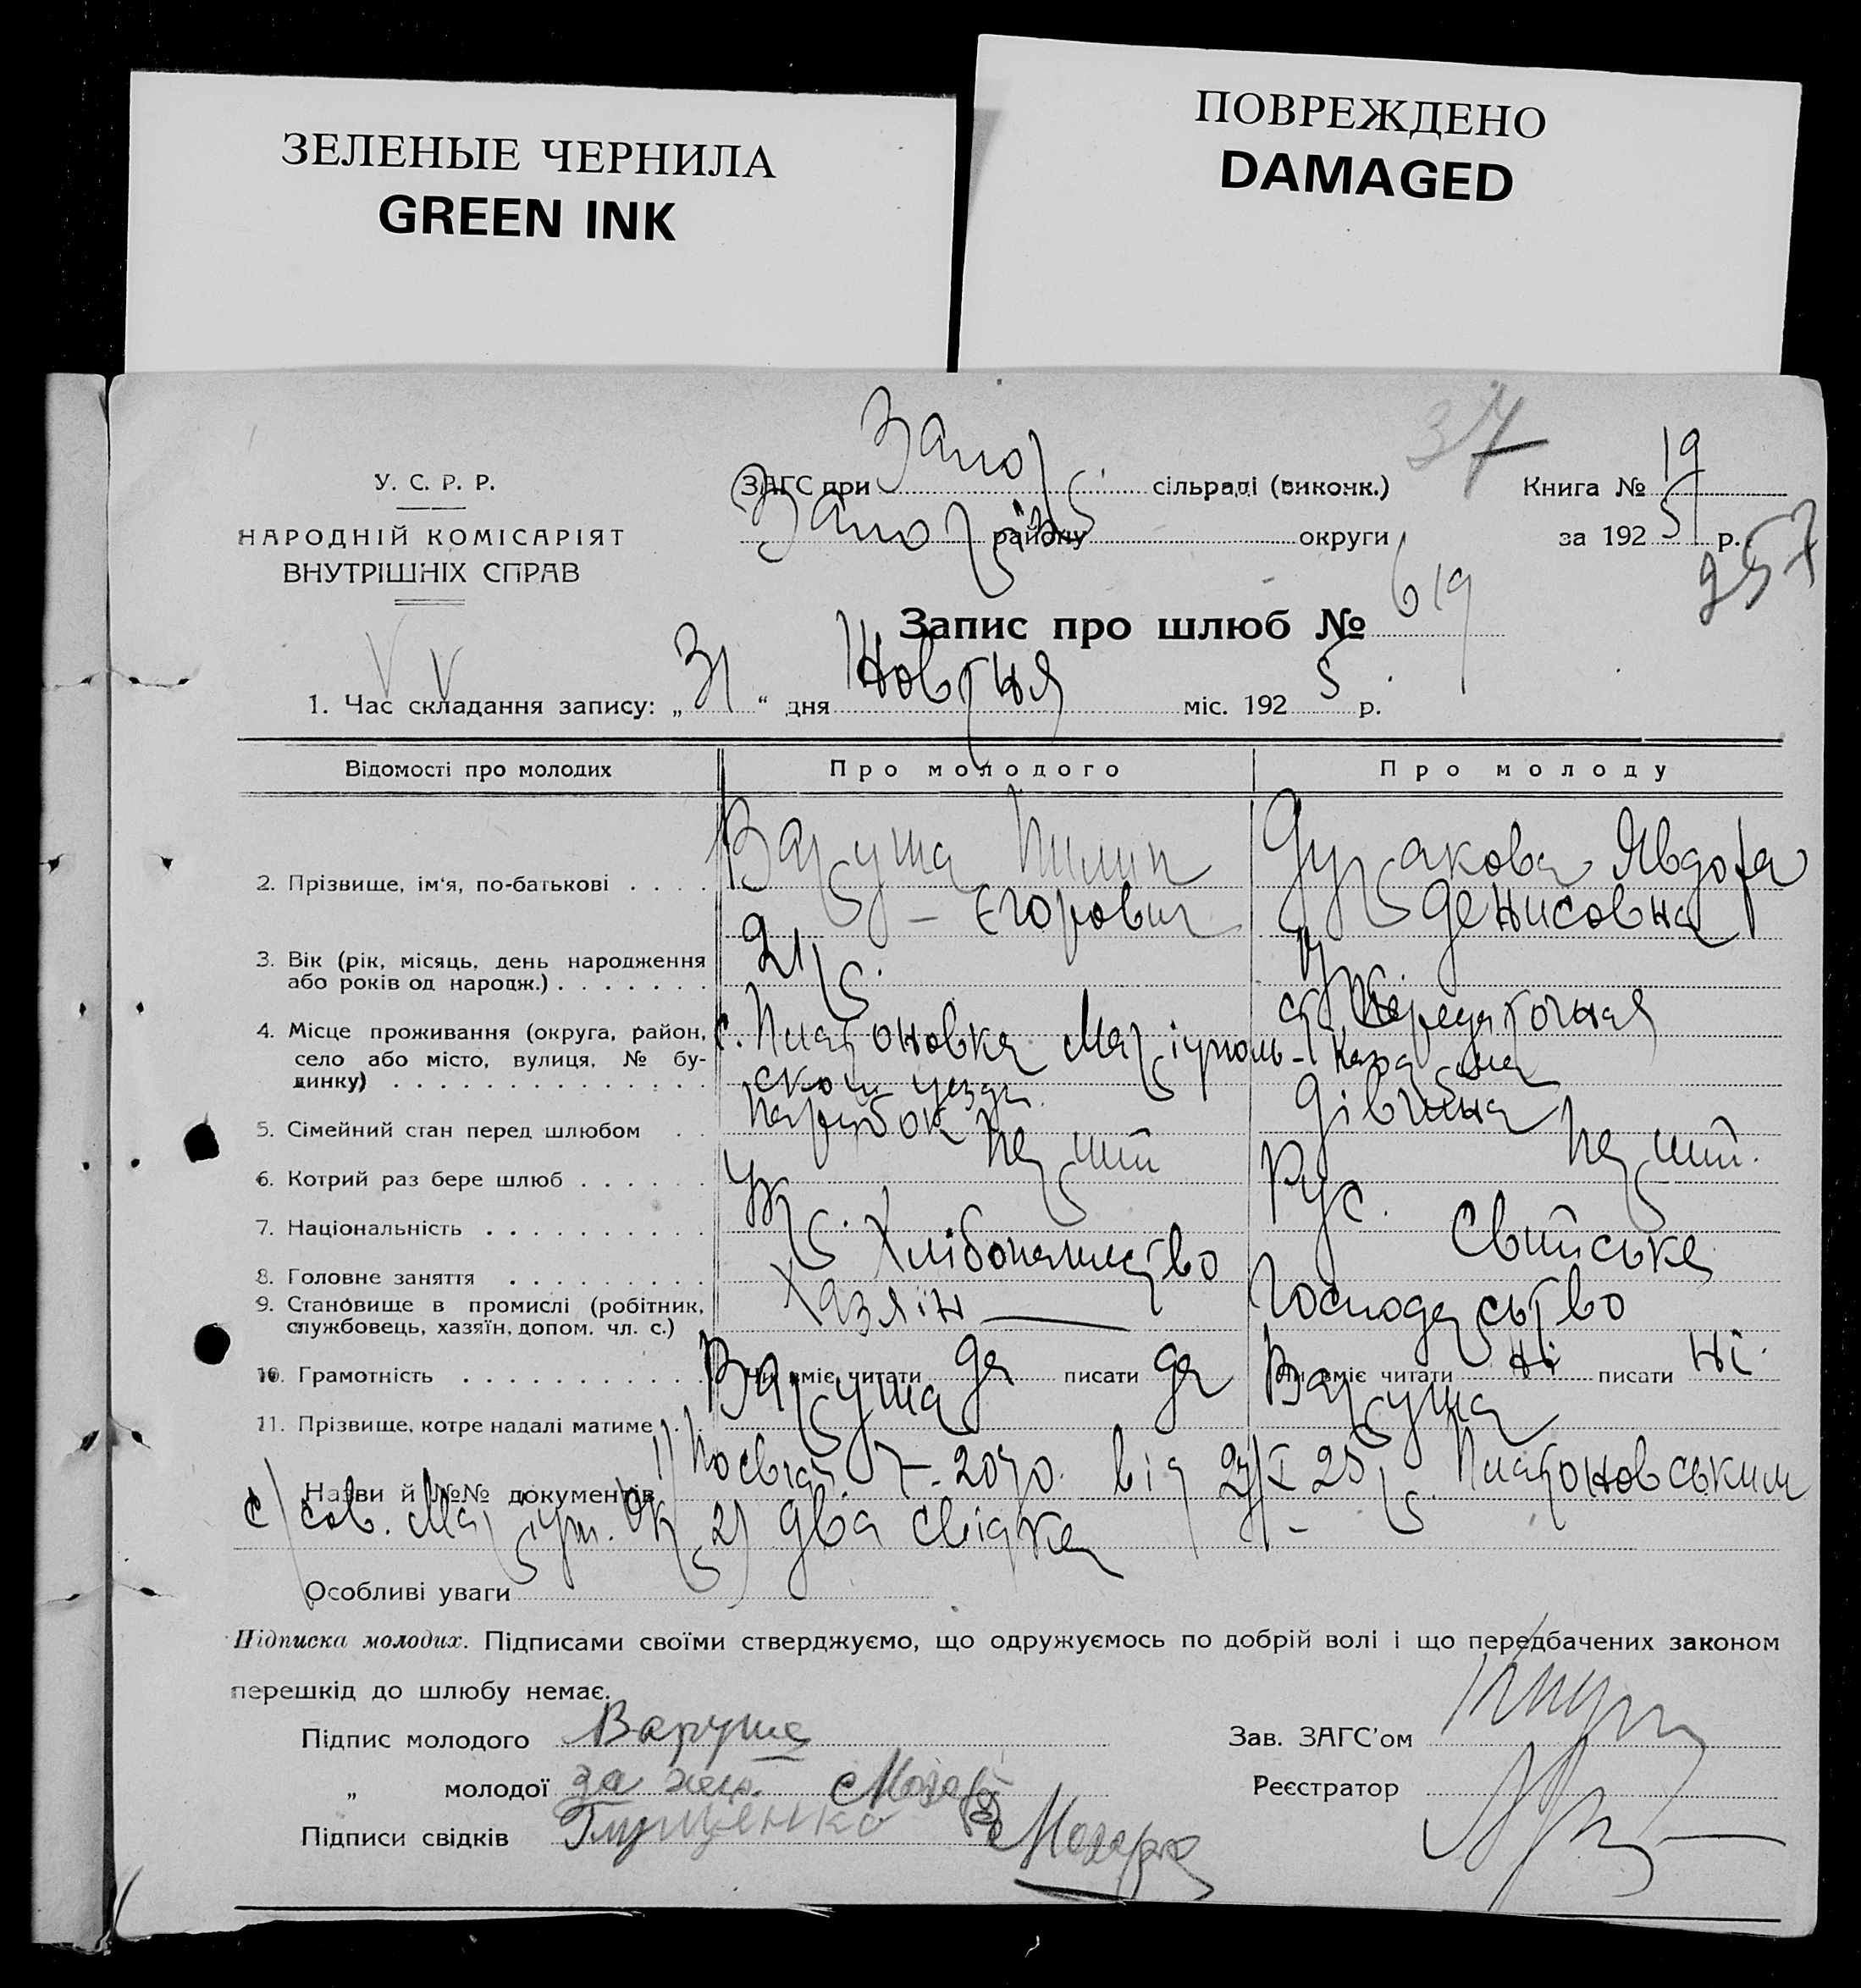 ЗЕЛЕНЫЕ ЧЕРНИЛА
GREEN INK
ПОВРЕЖДЕНО
DAMAGED
37
У. С. Р. Р.
НАРОДНІЙ КОМІСАРІЯТ
ВНУТРІШНІХ СПРАВ
ЗАГС при Запор сільраді (виконк.)
Запоріз району округи
Книга № 19
за 1925 р.
257
Запис про шлюб № 619
1. Час складання запису: „31“ дня Жовтня міс. 1925 р.
Відомості про молодих Про молодого Про молоду
2. Прізвище, ім'я, по-батькові Варуша Пилип Єгорович
Явдоха Денисовна
3. Вік (рік, місяць, день народження
або років од народж.) 21 р.
4. Місце проживання (округа, район,
село або місто, вулиця, № бу-
динку)
с. Платоновка Маріуполь-
ском уезди
ст. Передаточная
5. Сімейний стан перед шлюбом Парубок Дівчина
6. Котрий раз бере шлюб Перший Перший.
7. Національність Укр. Рус.
8. Головне заняття Хлібопашество
9. Становище в промислі (робітник,
службовець, хазяїн, допом. чл. с.) Хазяїн
Господарство
10. Грамотність Чи вміє читати да писати да Чи вміє читати ні писати ні
11. Прізвище, котре надалі матиме Варуша Варуша
Назви й №№ документів 1) Посвідч. 2070 від Платоновським
с/сов. Маріуп. Окр. 2) два свідка
Особливі уваги
Підписка молодих. Підписами своїми стверджуємо, що одружуємось по добрій волі і що передбачених законом
перешкід до шлюбу немає.
Підпис молодого Варуша
„ молодої за неп.
Підписи свідків Глущенко
Зав. ЗАГС'ом
Реєстратор